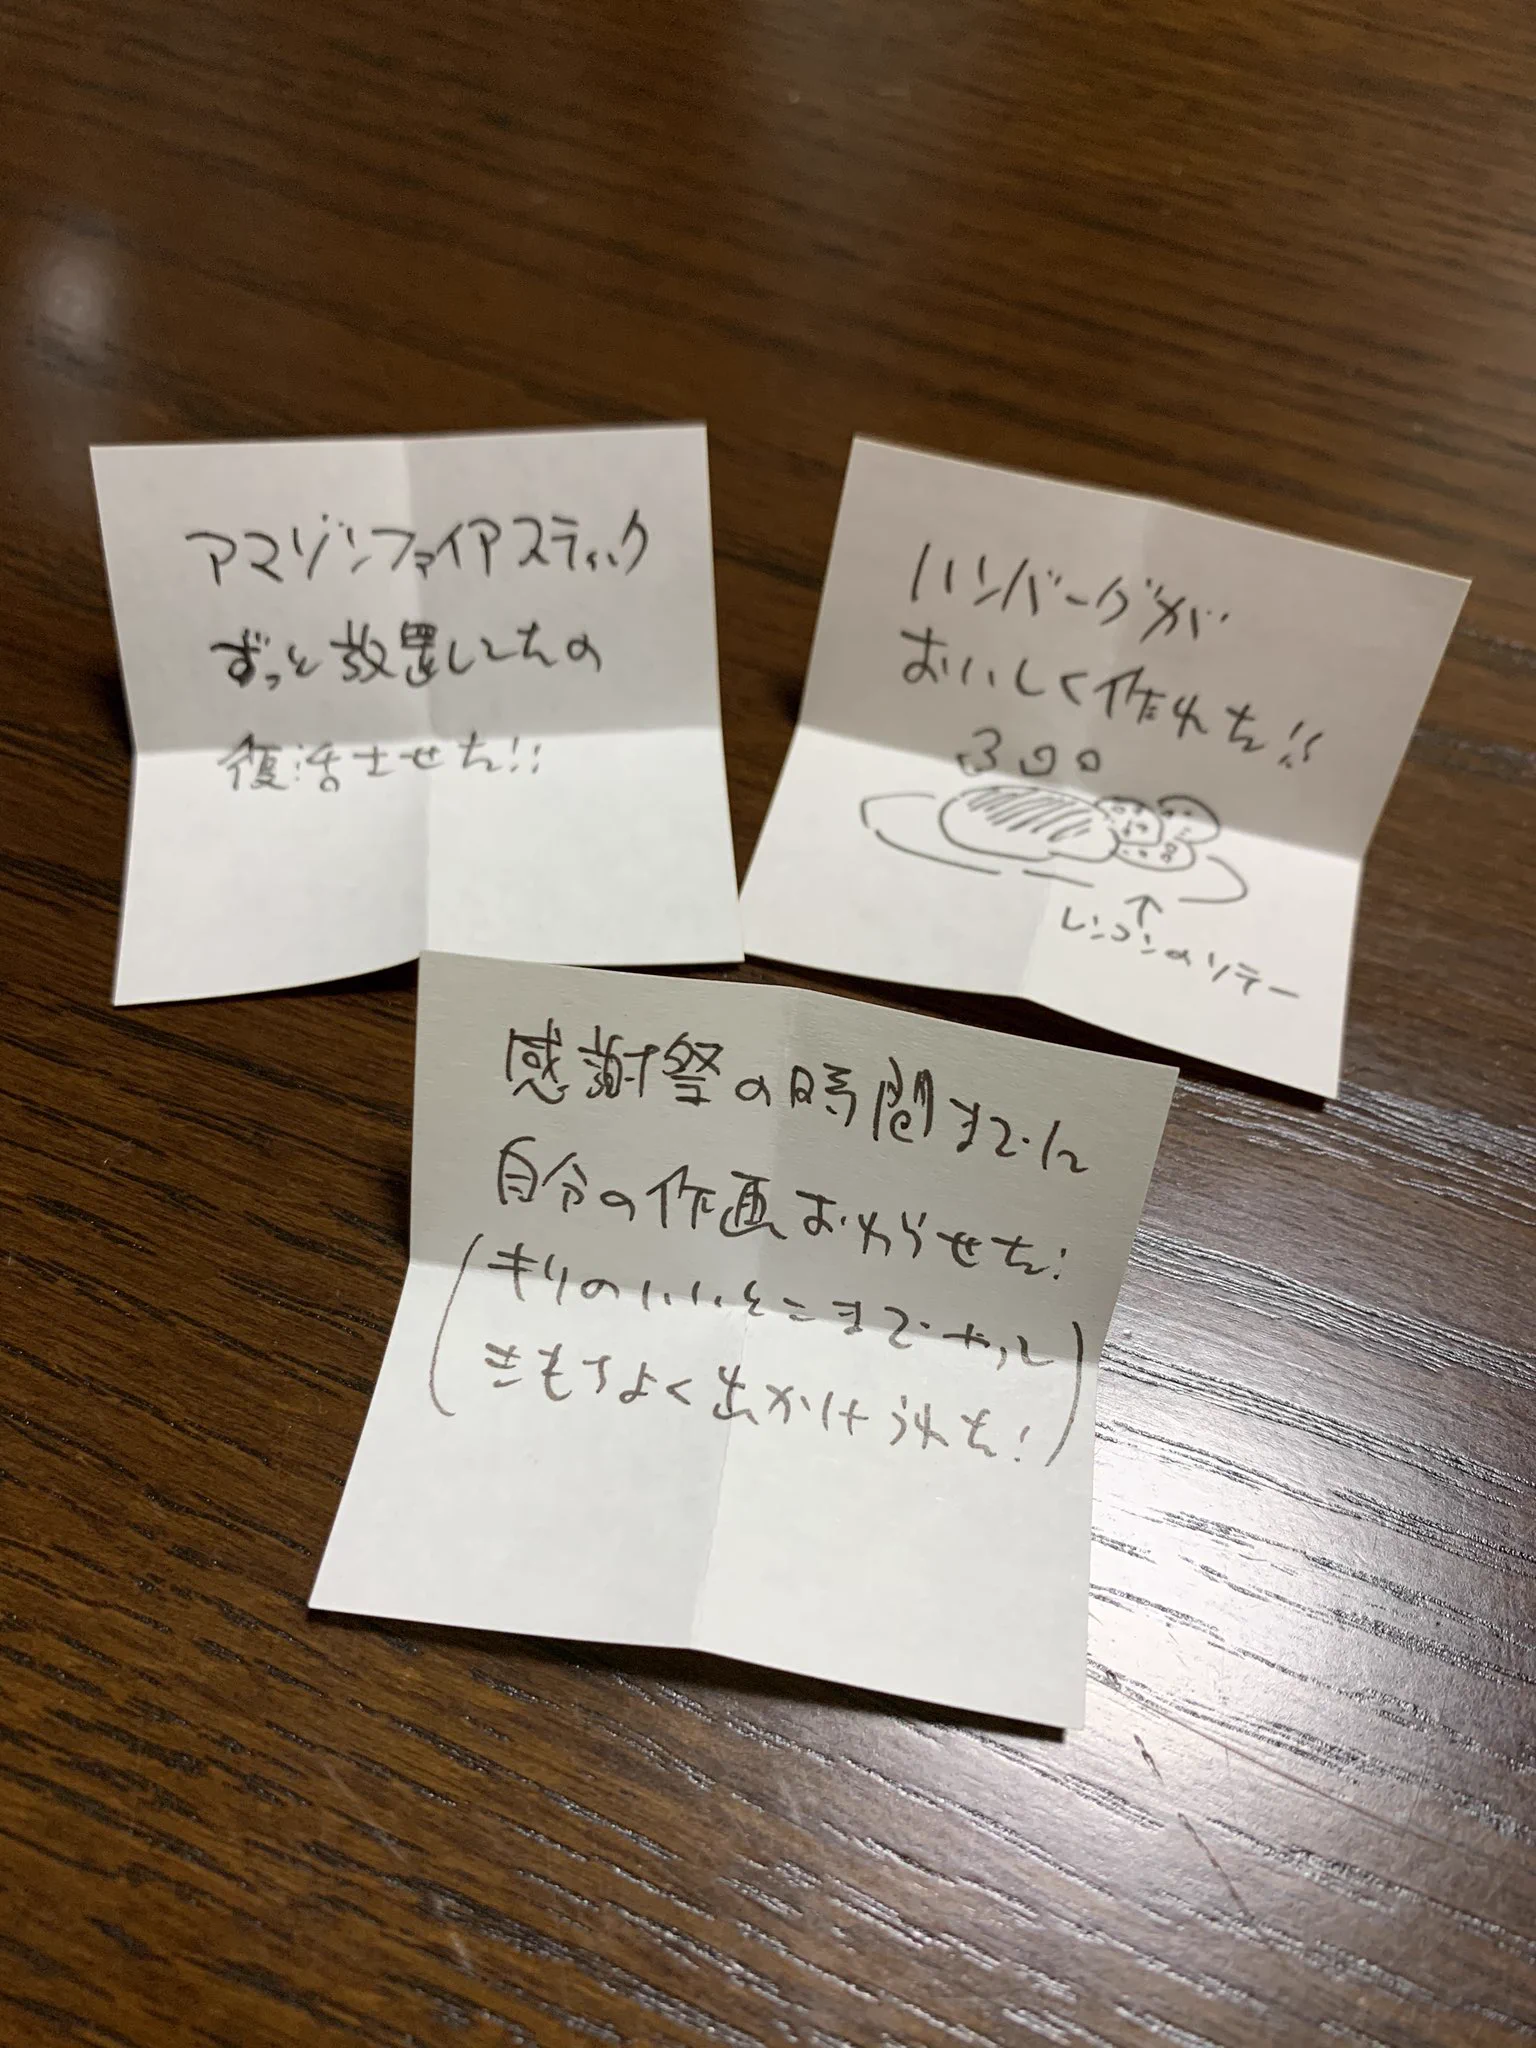 アマゾンファイアスティック
ずっと放置してたの
復活させた!!
ハンバーグが
おいしく作れた!!
レンコンのソテー
感謝祭の時間までに
自分の作画おわらせた!
(キリのいいとこまでやって
きもちよく出かけられた!)